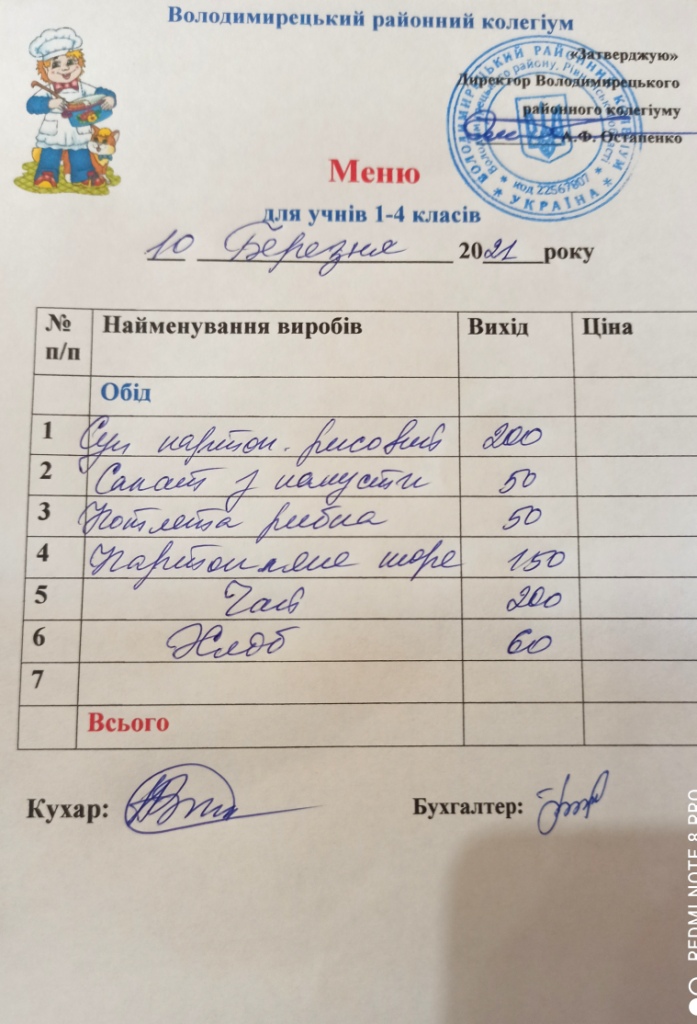 Володимирецький районний колегіум
«Затверджую»
Директор Володимирецького
районного колегіуму
А.Ф. Остапенко
ВОЛОДИМИРЕЦЬКИЙ РАЙОННИЙ КОЛЕГІУМ
* УКРАЇНА *
* код 22567807 *
Меню
для учнів 1-4 класів
10 Березня 2021 року
№ п/п Найменування виробів Вихід Ціна
Обід
1 Суп картоп. рисовий 200
2 Салат з капусти 50
3 Котлета рибна 50
4 Картопляне пюре 150
5 Чай 200
6 Хліб 60
7
Всього
Кухар: Бухгалтер:
REDMI NOTE 8 PRO